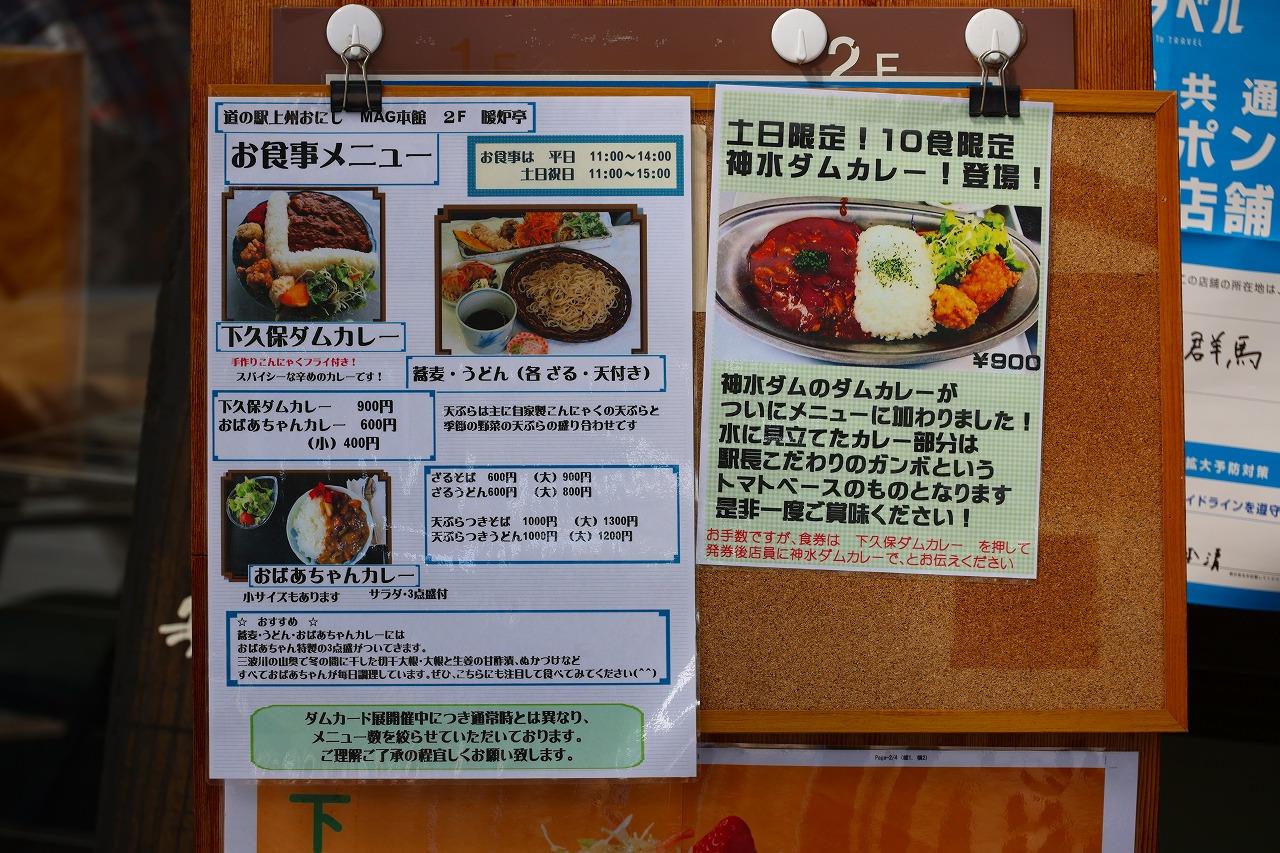 2F
道の駅上州おにし MAG本館 2F 暖炉亭
お食事メニュー
お食事は 平日 11:00～14:00
土日祝日 11:00～15:00
下久保ダムカレー
手作りこんにゃくフライ付き!
スパイシーな辛めのカレーです!
蕎麦・うどん(各 ざる・天付き)
下久保ダムカレー 900円
おばあちゃんカレー 600円
(小) 400円
天ぷらは主に自家製こんにゃくの天ぷらと
季節の野菜の天ぷらの盛り合わせです
ざるそば 600円 (大) 900円
ざるうどん600円 (大) 800円
天ぷらつきそば 1000円 (大) 1300円
天ぷらつきうどん1000円 (大) 1200円
おばあちゃんカレー
小サイズもあります サラダ・3点盛付
☆ おすすめ ☆
蕎麦・うどん・おばあちゃんカレーには
おばあちゃん特製の3点盛がついてきます。
三波川の山奥で冬の間に干した切干大根・大根と生姜の甘酢漬、ぬかづけなど
すべておばあちゃんが毎日調理しています。ぜひ、こちらにも注目して食べてみてください(^^)
ダムカード展開催中につき通常時とは異なり、
メニュー数を絞らせていただいております。
ご理解ご了承の程宜しくお願い致します。
土日限定!10食限定
神水ダムカレー!登場!
¥900
神水ダムのダムカレーが
ついにメニューに加わりました!
水に見立てたカレー部分は
駅長こだわりのガンボという
トマトベースのものとなります
是非一度ご賞味ください!
お手数ですが、食券は 下久保ダムカレー を押して
発券後店員に神水ダムカレーで、とお伝えください
ベル
TO TRAVEL
共通
ポン
店舗
この店舗の所在地は、
群馬
拡大予防対策
イドラインを遵守
Page-2/4 (横1, 横2)
下